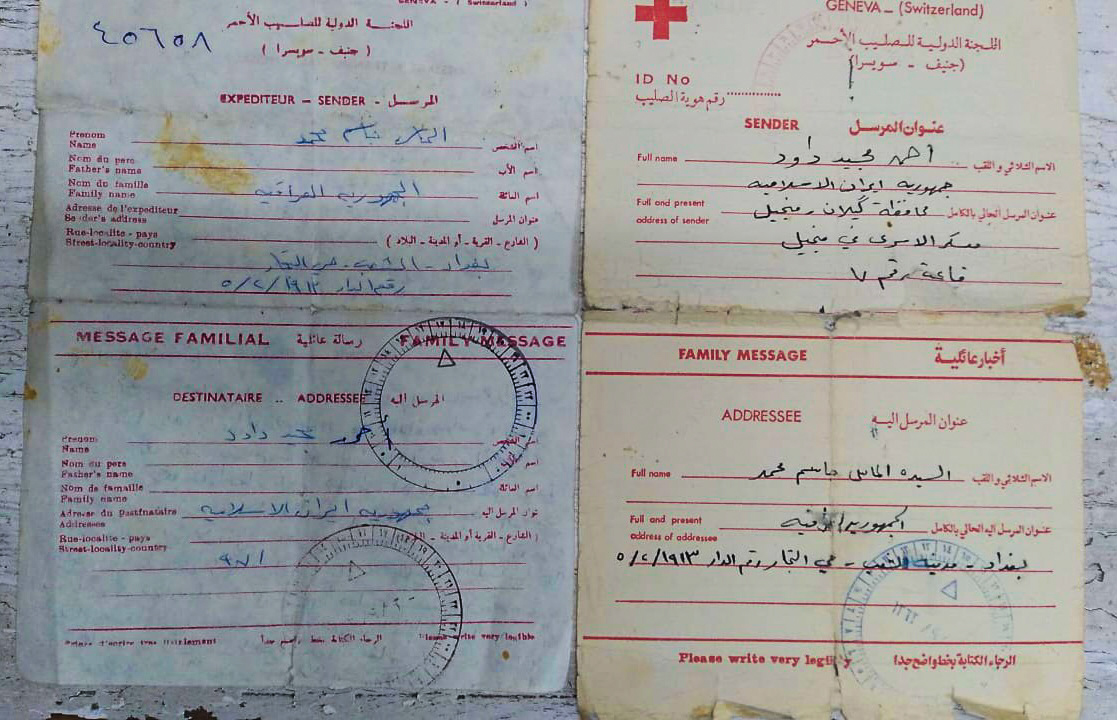 GENEVA - ( Switzerland )
اللجنة الدولية للصليب الأحمر
( جنيف - سويسرا )
٤٥٦٥٨
EXPEDITEUR – SENDER - المرسل
Prenom
Name
محمد
اسم الشخص
Nom du pere
Father's name
اسم الأب
Nom du famille
Family name
الجمهورية العراقية
اسم العائلة
Adresse de l'expediteur
Sender's address
عنوان المرسل
Rue-localite - pays
Street-locality-country
( الشارع - القرية - أو المدينة - البلاد )
بغداد - الشعب - حي التجار
رقم الدار ٥/٢/١٩١٣
MESSAGE FAMILIAL رسالة عائلية FAMILY MESSAGE
DESTINATAIRE .. ADDRESSEE المرسل اليه
Prenom
Name
داود
Nom du pere
Father's name
اسم
Nom de famaille
Family name
اسم العائلة
Adresse du
Addresses
جمهورية ايران الاسلامية
المرسل اليه
Rue-localite - paya
Street-locality-country
( الشارع - القرية - أو المدينة -
الرجاء الكتابة بخط واضح جداً
Please write very legible
GENEVA _ (Switzerland)
اللجنة الدولية للصليب الأحمر
(جنيف - سويسرا)
ID No
رقم هوية الصليب
SENDER عنوان المرسل
Full name أحمد مجيد داود الاسم الثلاثي واللقب
جمهورية ايران الاسلامية
Full and present
address of sender
محافظة گيلان - منجيل
عنوان المرسل الحالي بالكامل
معسكر الاسرى في منجيل
قاعة رقم ٧
FAMILY MESSAGE أخبار عائلية
ADDRESSEE عنوان المرسل اليه
Full name السيدة الماس جاسم محمد الاسم الثلاثي واللقب
Full and present
address of addressee
عنوان المرسل اليه الحالي بالكامل
بغداد - مدينة الشعب - حي التجار رقم الدار ٥/٢/١٩١٣
Please write very الرجاء الكتابة بخط واضح جدا